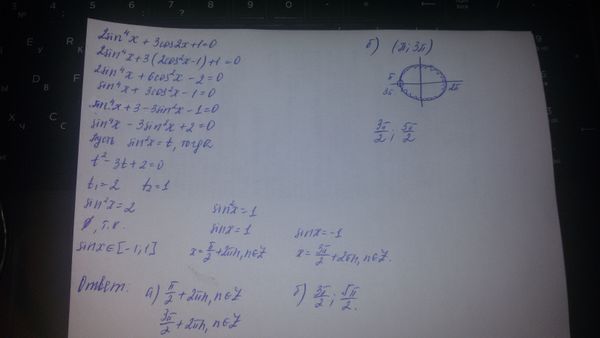 2sin⁴x + 3cos2x + 1 = 0
2sin⁴x + 3(2cos²x - 1) + 1 = 0
2sin⁴x + 6cos²x - 2 = 0
sin⁴x + 3cos²x - 1 = 0
sin⁴x + 3 - 3sin²x - 1 = 0
sin⁴x - 3sin²x + 2 = 0
Пусть sin²x = t, тогда
t² - 3t + 2 = 0
t₁ = 2 t₂ = 1
sin²x = 2 sin²x = 1
∅, т.к. sinx = 1 sinx = -1
sinx ∈ [-1; 1] x = π/2 + 2πn, n∈Z x = 3π/2 + 2πn, n∈Z.
б) (π; 3π)
π
3π
2π
3π/2 ; 5π/2
Ответ: а) π/2 + 2πn, n∈Z б) 3π/2 ; 5π/2.
3π/2 + 2πn, n∈Z